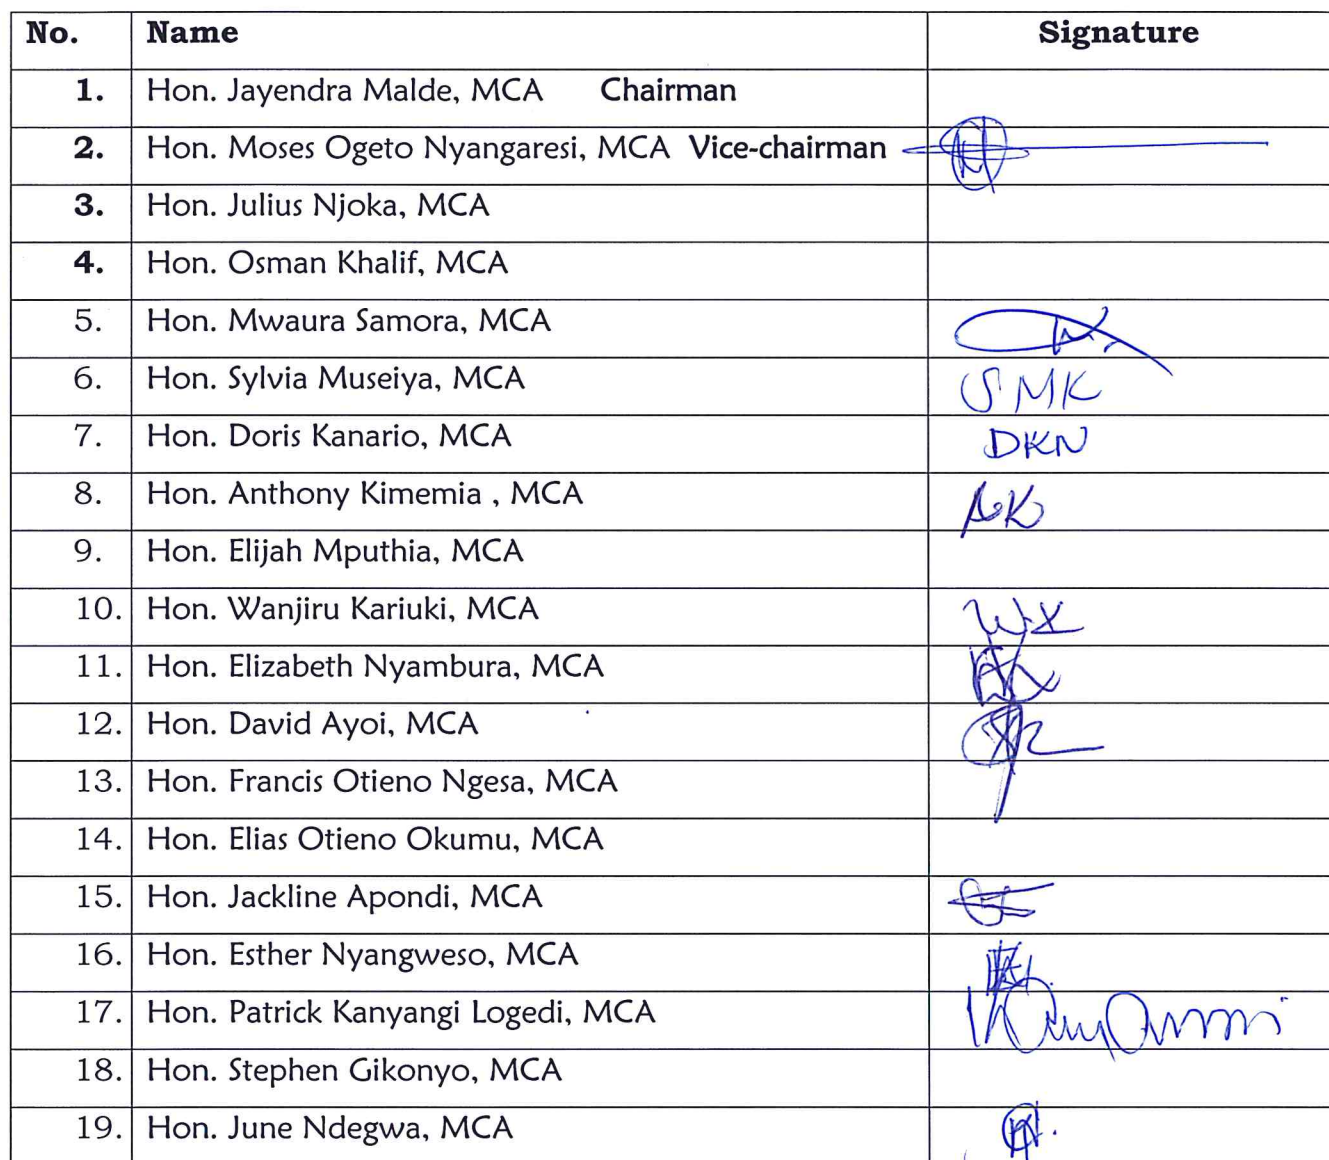 No. Name Signature
1. Hon. Jayendra Malde, MCA Chairman
2. Hon. Moses Ogeto Nyangaresi, MCA Vice-chairman
3. Hon. Julius Njoka, MCA
4. Hon. Osman Khalif, MCA
5. Hon. Mwaura Samora, MCA
6. Hon. Sylvia Museiya, MCA SMK
7. Hon. Doris Kanario, MCA DKN
8. Hon. Anthony Kimemia , MCA AK
9. Hon. Elijah Mputhia, MCA
10. Hon. Wanjiru Kariuki, MCA WK
11. Hon. Elizabeth Nyambura, MCA
12. Hon. David Ayoi, MCA
13. Hon. Francis Otieno Ngesa, MCA
14. Hon. Elias Otieno Okumu, MCA
15. Hon. Jackline Apondi, MCA
16. Hon. Esther Nyangweso, MCA
17. Hon. Patrick Kanyangi Logedi, MCA
18. Hon. Stephen Gikonyo, MCA
19. Hon. June Ndegwa, MCA